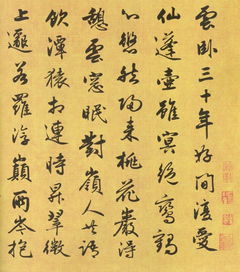 雲臥三十年好閒復愛
仙蓬壺雖冥絕鸞鶴
心悠然歸來桃花巖得
憩雲窗眠對嶺人共語
飲潭猿相連時昇翠微
上邈若羅浮巔兩岑抱